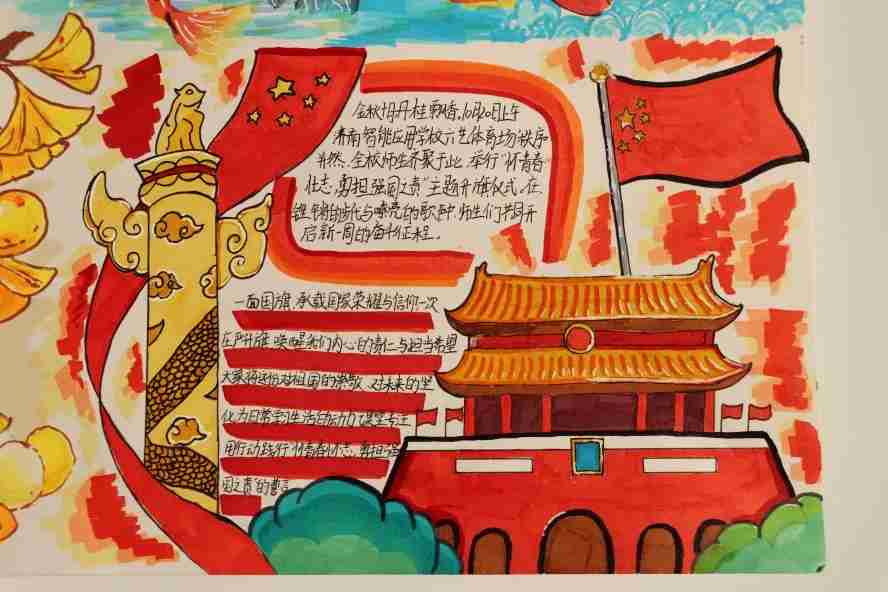 金秋十月丹桂飘香,10月20日上午
济南智能应用学校广艺体育场秩序
井然,全校师生齐聚于此,举行"怀青春
壮志,勇担强国之责"主题升旗仪式,在
的时代与嘹亮的歌声中,师生们共同开
启新一周的奋斗征程。
一面国旗,承载国家荣耀与信仰一次
庄严升旗 唤醒我们内心的责任与担当希望
大家将这份对祖国的崇敬、对未来的坚
化为日常学习生活的动力 课堂专注
用行动践行"怀青春壮志,勇担强
国之责"的誓言